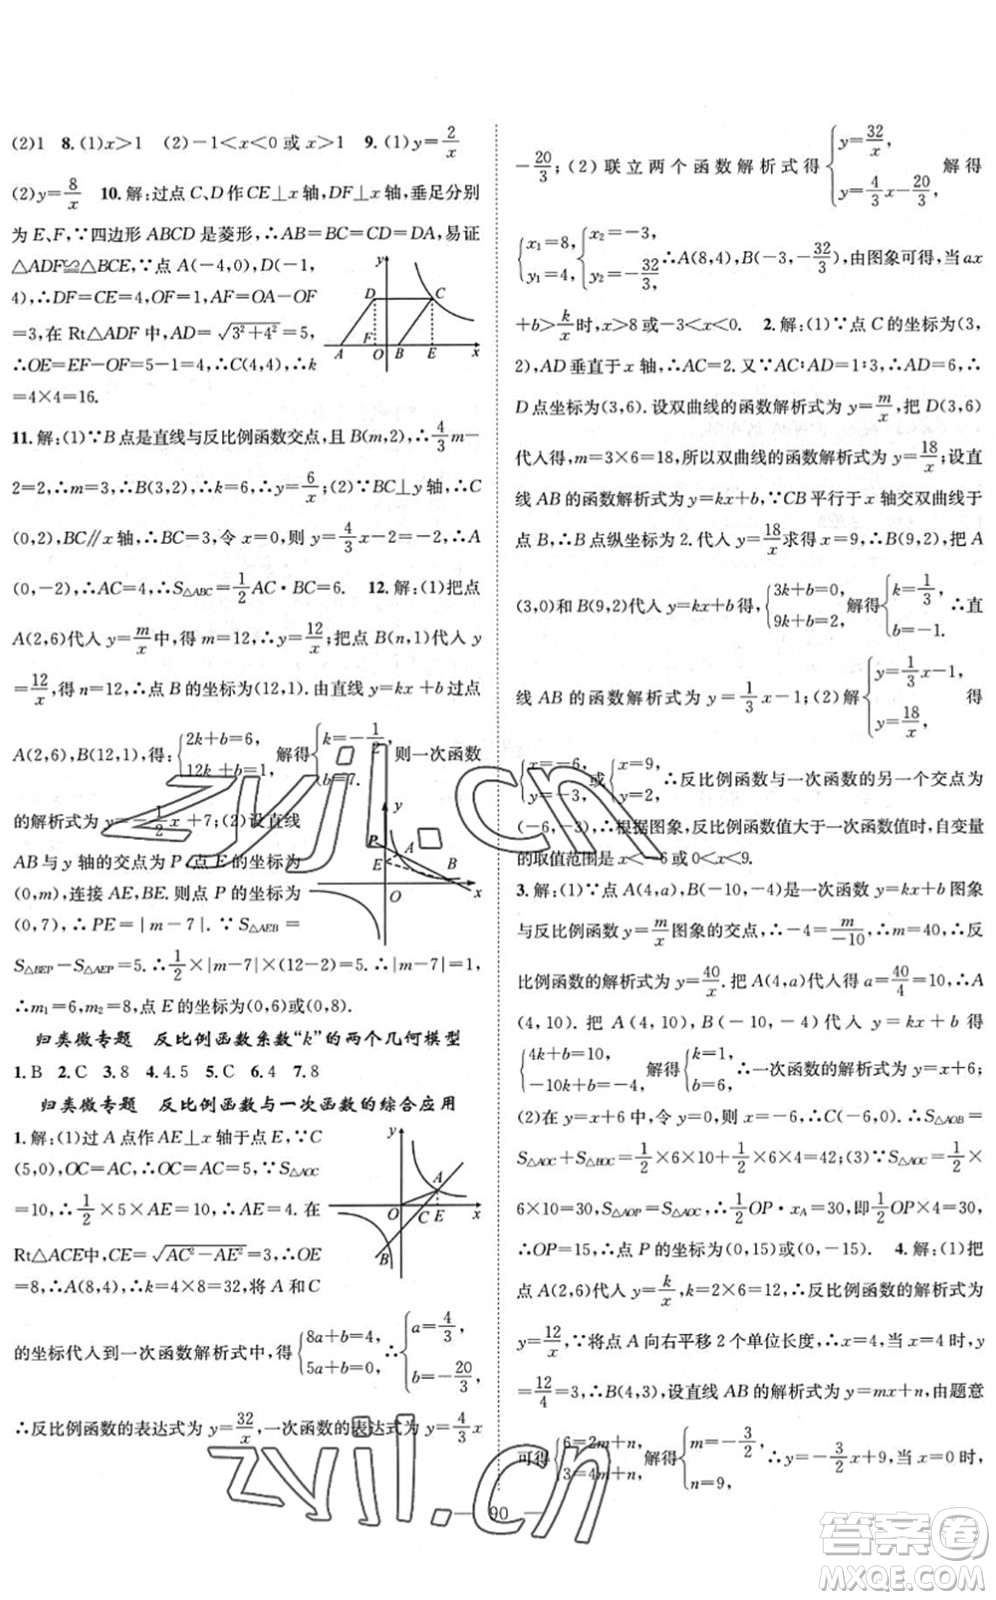 (2)1 8.(1)x>1 (2)-1<x<0 或 x>1 9.(1)y=2/x
(2)y=8/x 10.解:过点 C、D 作 CE⊥x 轴,DF⊥x 轴,垂足分别
为 E、F,∵四边形 ABCD 是菱形,∴AB=BC=CD=DA,易证
△ADF≌△BCE,∵点 A(-4,0),D(-1,
4),∴DF=CE=4,OF=1,AF=OA-OF
=3,在 Rt△ADF 中,AD=√(3²+4²)=5,
∴OE=EF-OF=5-1=4,∴C(4,4),∴k
=4×4=16.
y D C F A O B E x
11.解:(1)∵B 点是直线与反比例函数交点,且 B(m,2),∴4/3m-
2=2,∴m=3,∴B(3,2),∴k=6,∴y=6/x;(2)∵BC⊥y 轴,∴C
(0,2),BC∥x 轴,∴BC=3,令 x=0,则 y=4/3x-2=-2,∴A
(0,-2),∴AC=4,∴S△ABC=1/2AC·BC=6. 12.解:(1)把点
A(2,6)代入 y=m/x中,得 m=12,∴y=12/x;把点 B(n,1)代入 y
=12/x,得 n=12,∴点 B 的坐标为(12,1).由直线 y=kx+b 过点
A(2,6),B(12,1),得:{2k+b=6, 12k+b=1, 解得{k=-1/2, b=7. 则一次函数
的解析式为 y=-1/2x+7;(2)设直线
AB 与 y 轴的交点为 P,点 E 的坐标为
(0,m),连接 AE,BE.则点 P 的坐标为
(0,7),∴PE=|m-7|.∵S△AEB=
S△BEP-S△AEP=5.∴1/2×|m-7|×(12-2)=5.∴|m-7|=1.
∴m₁=6,m₂=8,点 E 的坐标为(0,6)或(0,8).
y P A E B O x
归类微专题 反比例函数系数“k”的两个几何模型
1.B 2.C 3.8 4.4.5 5.C 6.4 7.8
归类微专题 反比例函数与一次函数的综合应用
1.解:(1)过 A 点作 AE⊥x 轴于点 E,∵C
(5,0),OC=AC,∴OC=AC=5,∵S△AOC
=10,∴1/2×5×AE=10,∴AE=4.在
Rt△ACE中,CE=√(AC²-AE²)=3,∴OE
=8,∴A(8,4),∴k=4×8=32,将 A 和 C
y A O C E x B
的坐标代入到一次函数解析式中,得{8a+b=4, 5a+b=0, ∴{a=4/3, b=-20/3,
∴反比例函数的表达式为 y=32/x,一次函数的表达式为 y=4/3x
-20/3;(2)联立两个函数解析式得{y=32/x, y=4/3x-20/3, 解得
{x₁=8, y₁=4, {x₂=-3, y₂=-32/3, ∴A(8,4),B(-3,-32/3),由图象可得,当 ax
+b>k/x时,x>8 或-3<x<0. 2.解:(1)∵点 C 的坐标为(3,
2),AD 垂直于 x 轴,∴AC=2.又∵AC:AD=1:3,∴AD=6,∴
D 点坐标为(3,6).设双曲线的函数解析式为 y=m/x,把 D(3,6)
代入得,m=3×6=18,所以双曲线的函数解析式为 y=18/x;设直
线 AB 的函数解析式为 y=kx+b,∵CB 平行于 x 轴交双曲线于
点 B,∴B 点纵坐标为 2.代入 y=18/x求得 x=9,∴B(9,2).把 A
(3,0)和 B(9,2)代入 y=kx+b得,{3k+b=0, 9k+b=2, 解得{k=1/3, b=-1. ∴直
线 AB 的函数解析式为 y=1/3x-1;(2)解{y=1/3x-1, y=18/x, 得
{x=-6, y=-3, 或{x=9, y=2, ∴反比例函数与一次函数的另一个交点为
(-6,-3),∴根据图象,反比例函数值大于一次函数值时,自变量
的取值范围是 x<-6或 0<x<9.
3.解:(1)∵点 A(4,a),B(-10,-4)是一次函数 y=kx+b 图象
与反比例函数 y=m/x图象的交点,∴-4=m/-10,∴m=40,∴反
比例函数的解析式为 y=40/x.把 A(4,a)代入得 a=40/4=10,∴A
(4,10).把 A(4,10),B(-10,-4)代入 y=kx+b 得
{4k+b=10, -10k+b=-4, 解得{k=1, b=6, ∴一次函数的解析式为 y=x+6;
(2)在 y=x+6 中,令 y=0,则 x=-6,∴C(-6,0),∴S△AOB=
S△AOC+S△BOC=1/2×6×10+1/2×6×4=42;(3)∵S△AOC=1/2×
6×10=30,S△AOP=S△AOC,∴1/2OP·xA=30,即1/2OP×4=30,
∴OP=15,∴点 P 的坐标为(0,15)或(0,-15). 4.解:(1)把
点 A(2,6)代入 y=k/x,k=2×6=12,∴反比例函数的解析式为
y=12/x,∵将点 A 向右平移 2 个单位长度,∴x=4,当 x=4 时,y=
12/4=3,∴B(4,3),设直线 AB 的解析式为 y=mx+n,由题意
可得{6=2m+n, 3=4m+n, 解得{m=-3/2, n=9, ∴y=-3/2x+9,当 x=0
— 90 —
zyjl.cn
zyjl.cn
答案卷
MXQE.COM